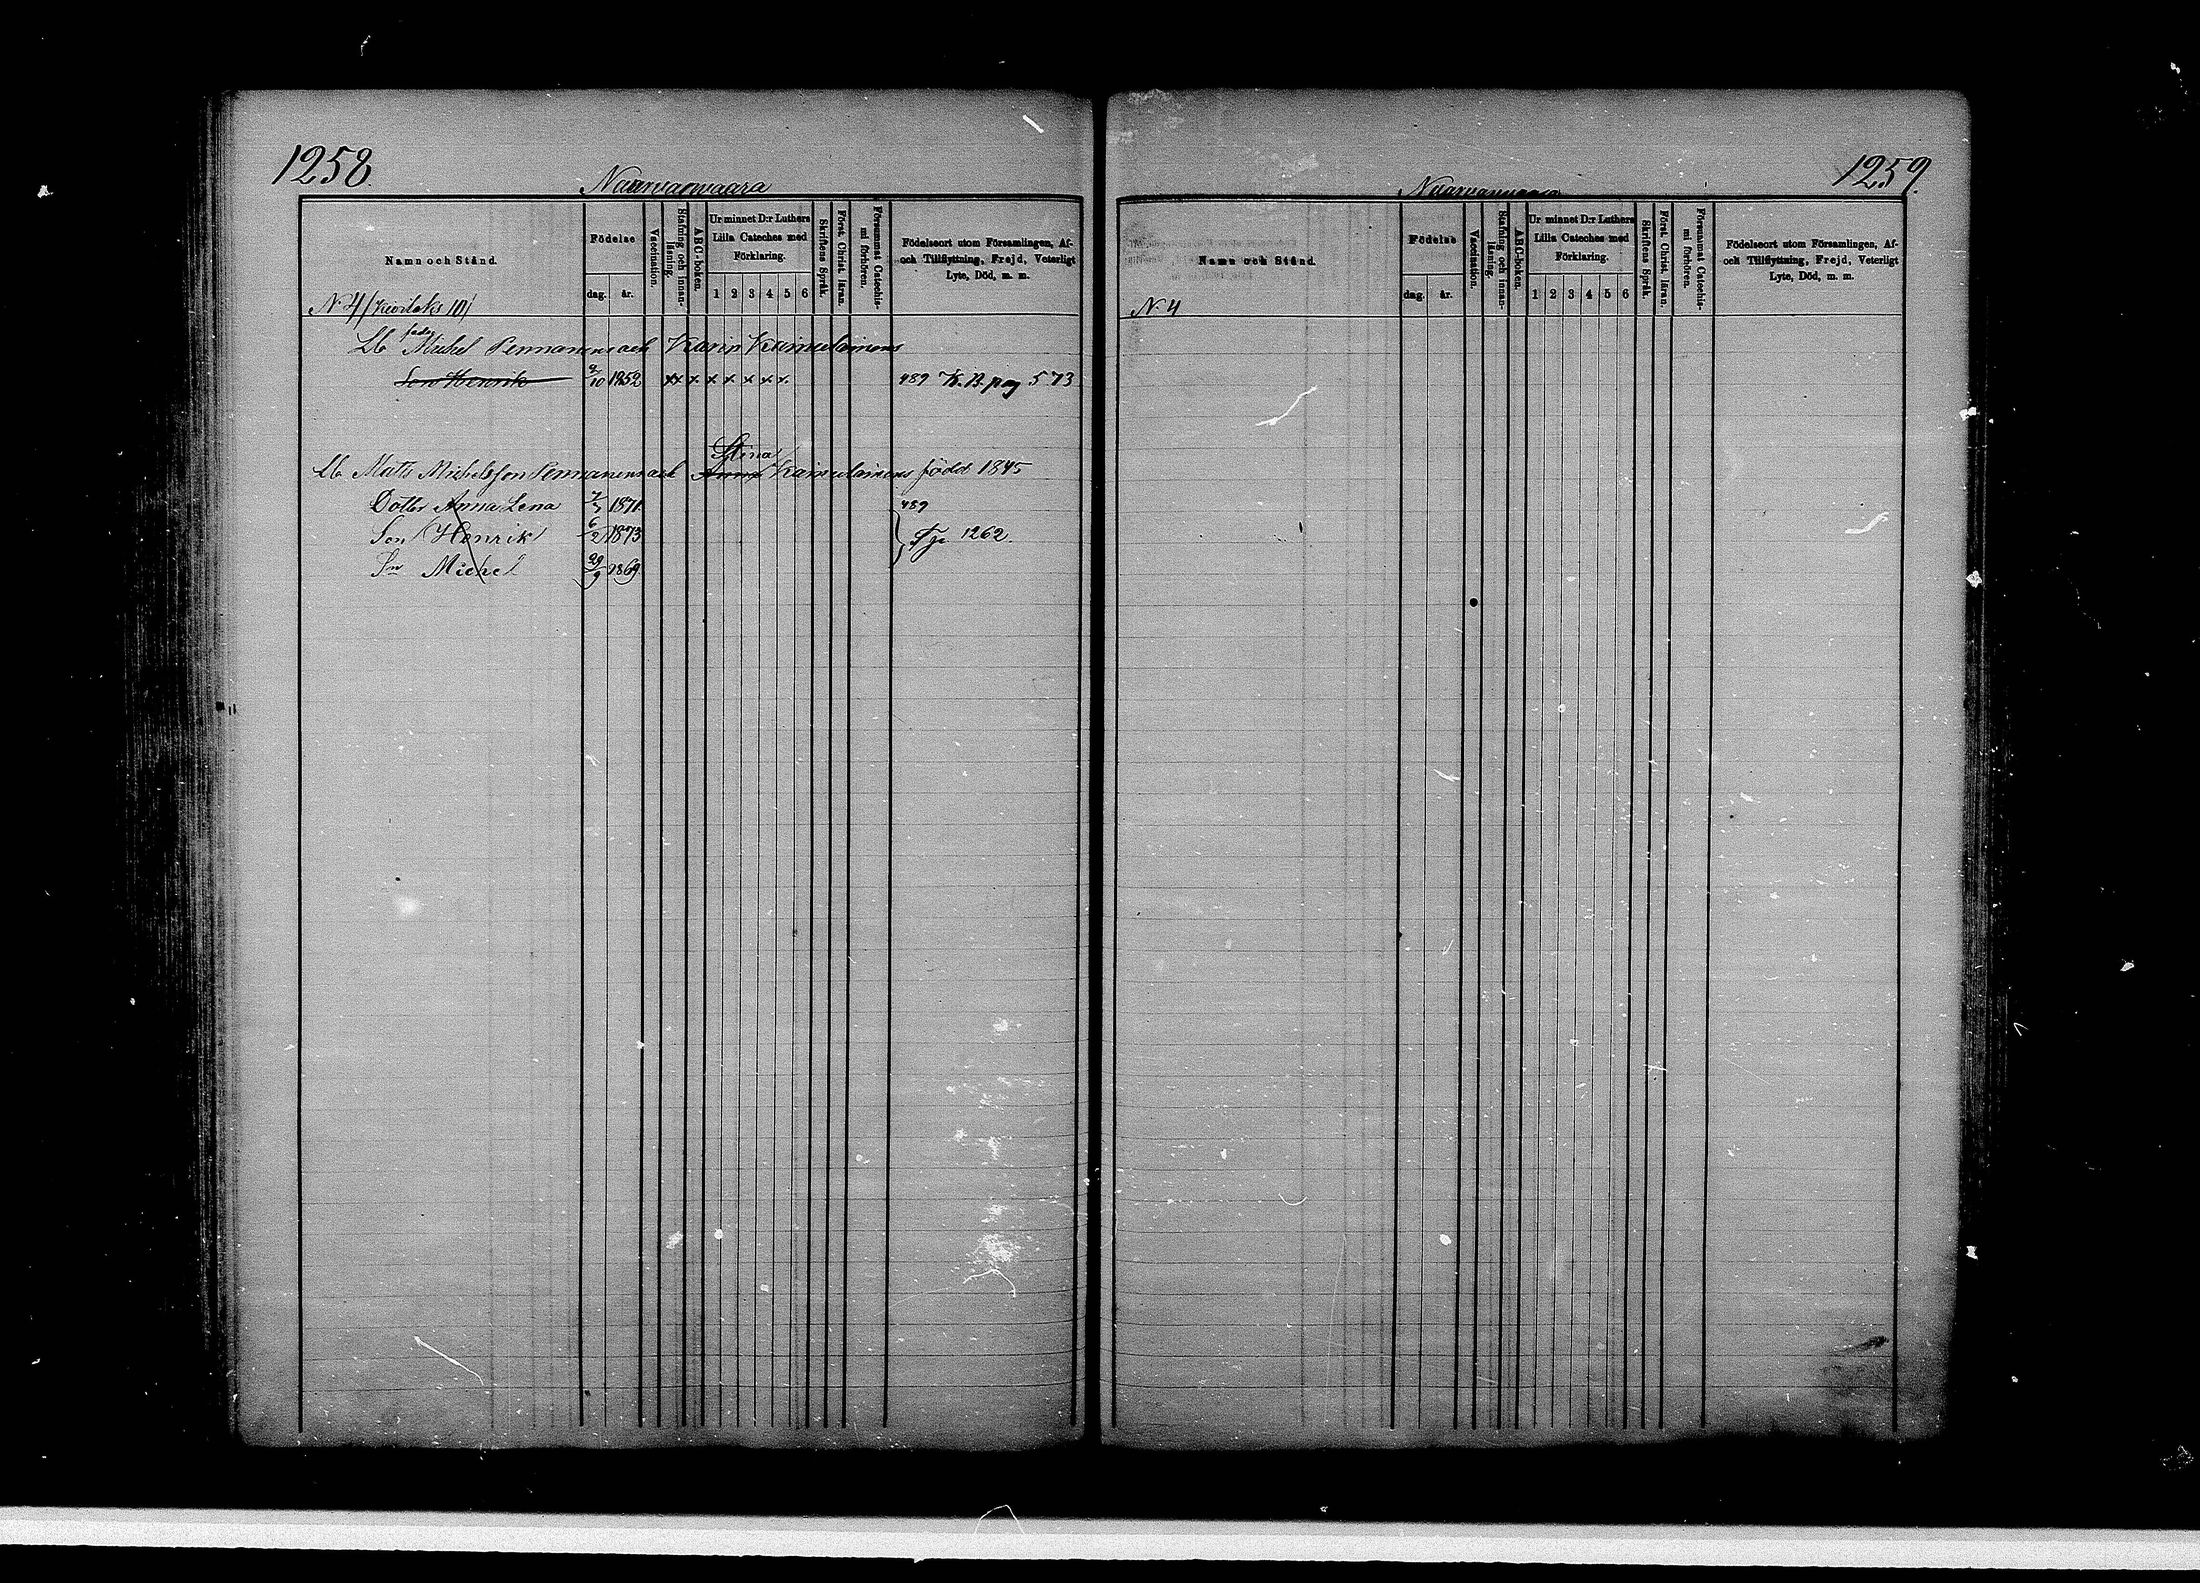 1258.
Naarvanvaara
Namn och Stånd.
Födelse
dag. år.
Vaccination.
Stafning och innanläsning.
ABC-boken.
Ur minnet D:r Luthers Lilla Cateches med Förklaring.
1 2 3 4 5 6
Skriftens Språk.
Först. Christ. läran.
Försummat Catechismi förhören.
Födelseort utom Församlingen, Af- och Tillflyttning, Frejd, Veterligt Lyte, Död, m. m.
N. 4
Lb Michel Pennanens och Karin Kaimulainens
Son Henrik 10 1852 x x x x x x x x 489 K. B. pag 573
Stina
Lb Matts Michelsson Pennanens och Anna Kaimulainens född 1845
Dotter Anna Lena 1871 489
Son Henrik 6/2 1873
1262.
Sn Michel 29/9 1869
1259.
Naarvanvaara
Namn och Stånd.
Födelse
dag. år.
Vaccination.
Stafning och innanläsning.
ABC-boken.
Ur minnet D:r Luthers Lilla Cateches med Förklaring.
1 2 3 4 5 6
Skriftens Språk.
Först. Christ. läran.
Försummat Catechismi förhören.
Födelseort utom Församlingen, Af- och Tillflyttning, Frejd, Veterligt Lyte, Död, m. m.
N. 4